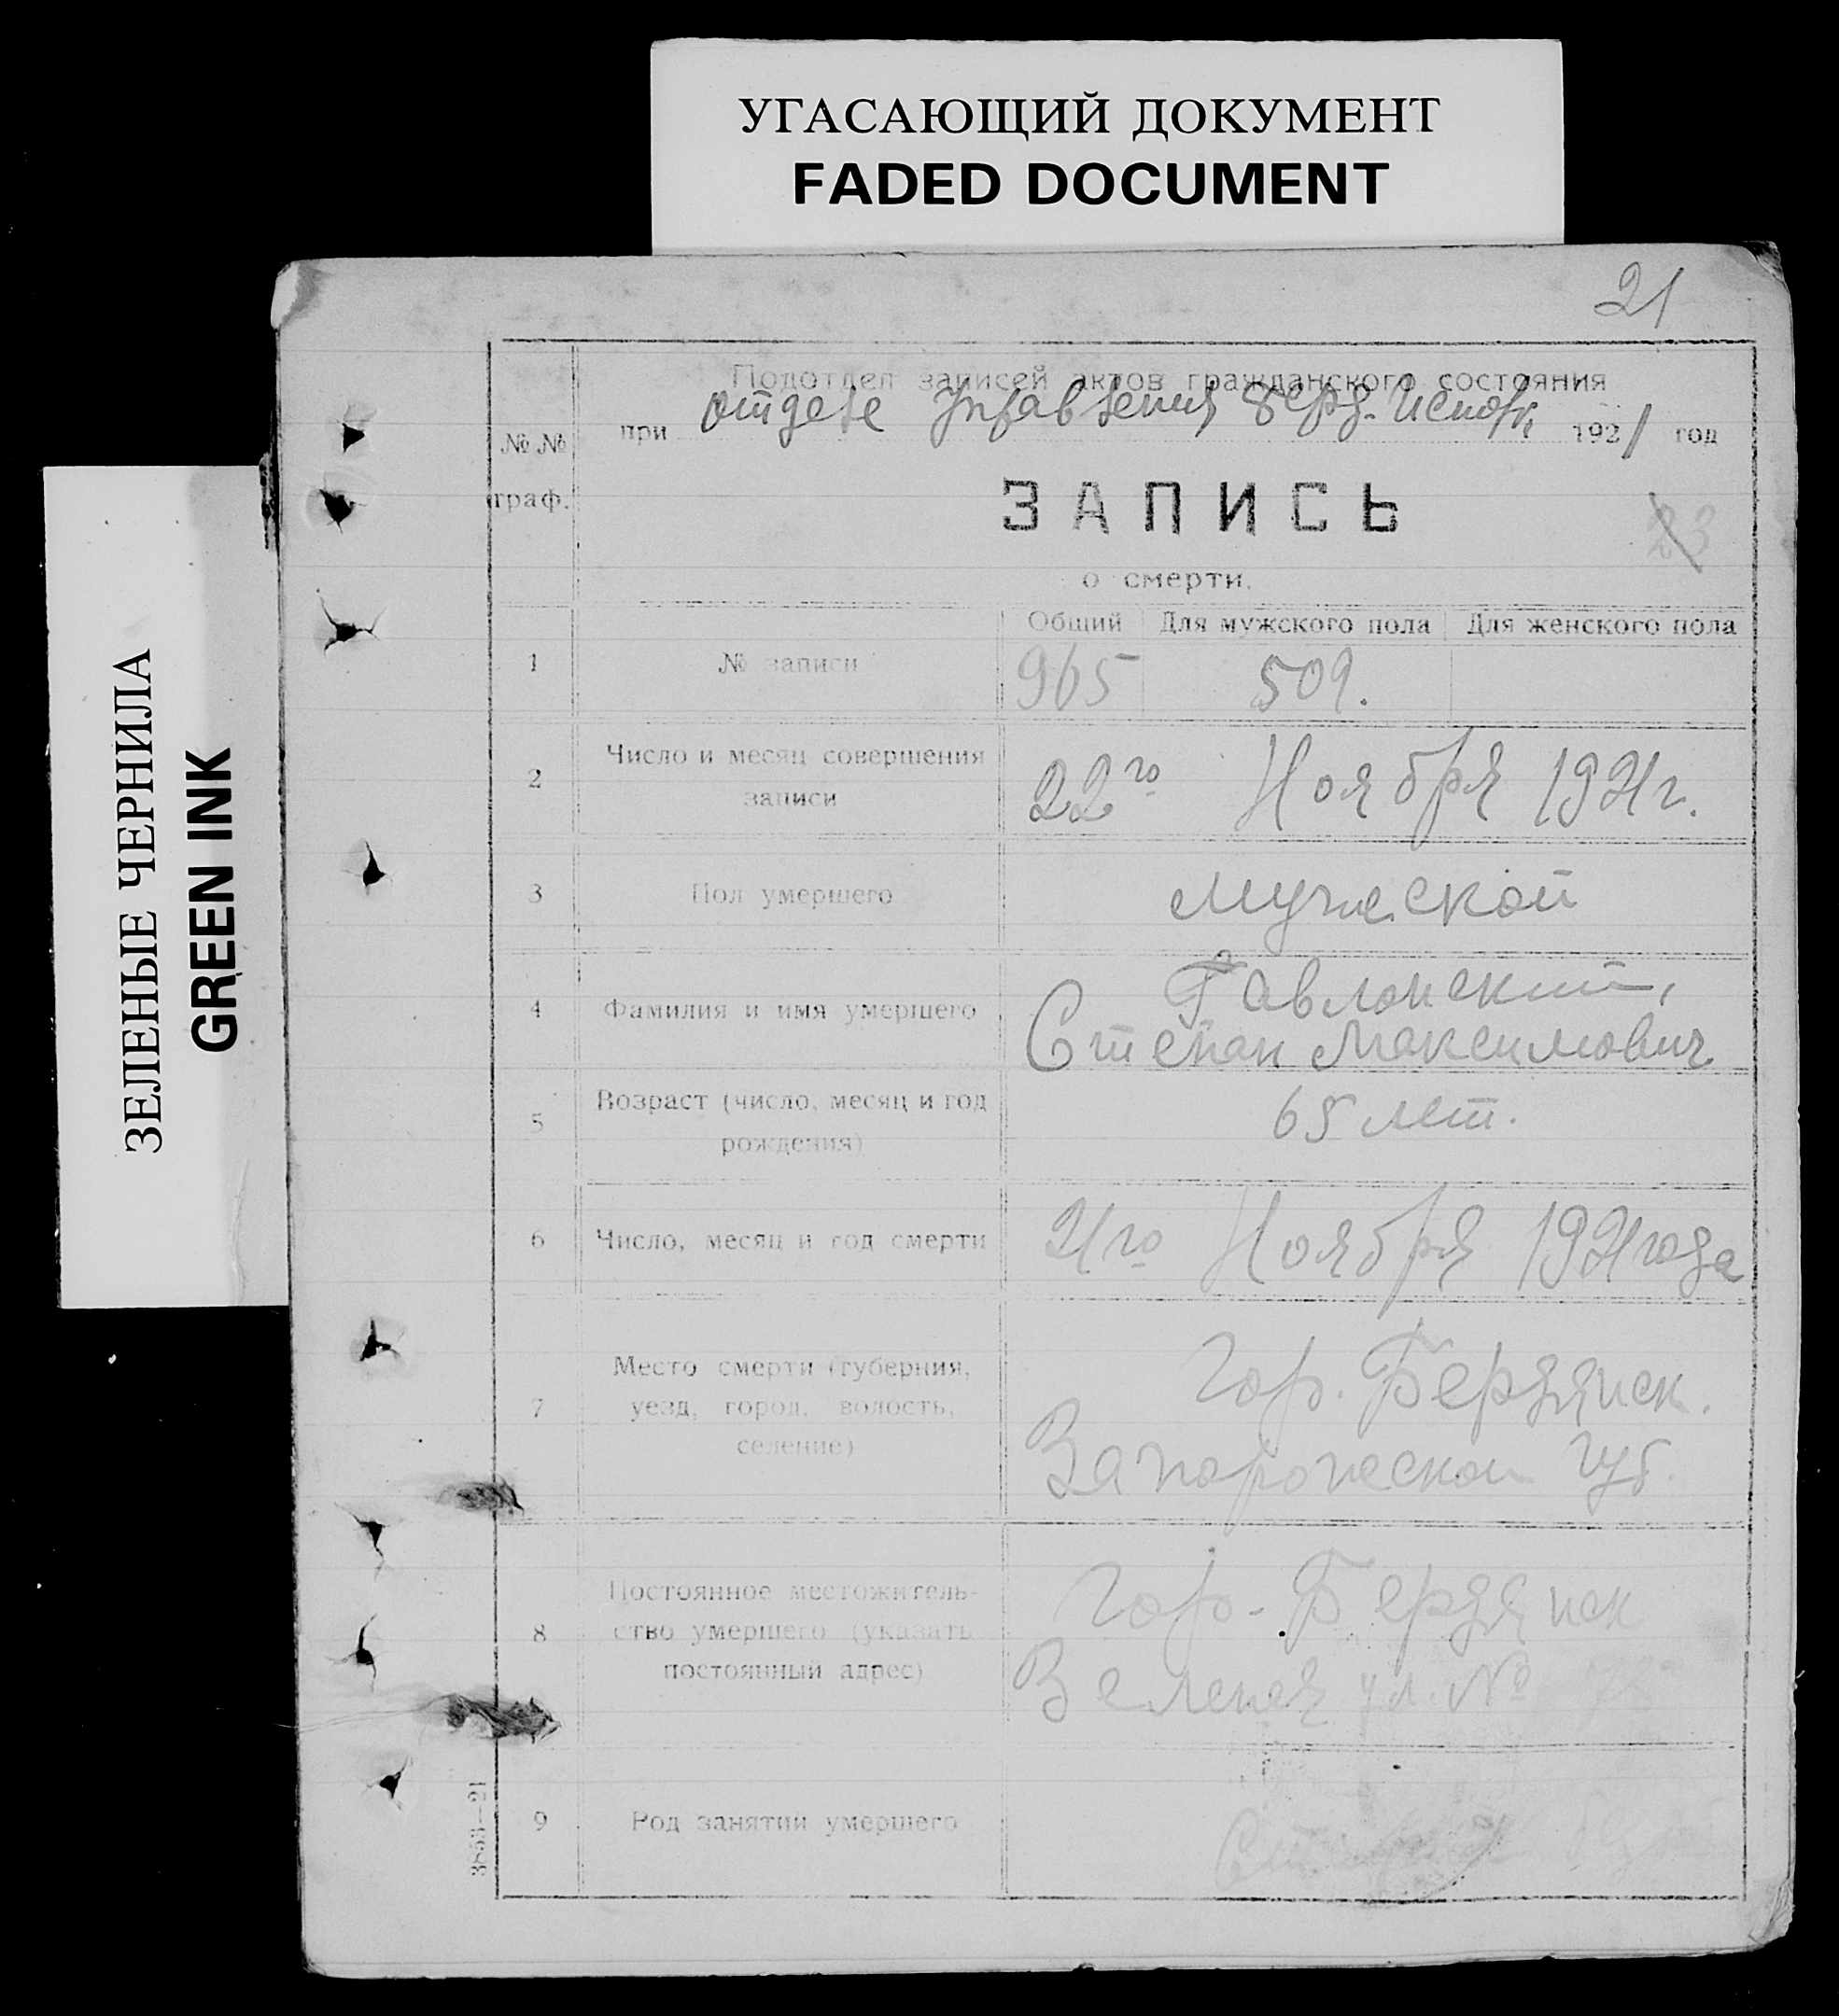 УГАСАЮЩИЙ ДОКУМЕНТ
FADED DOCUMENT
ЗЕЛЕНЫЕ ЧЕРНИЛА
GREEN INK
21
Подотдел записей актов гражданского состояния
при отделе Управления Берд. Исполк. 1921 год
№№ граф.
ЗАПИСЬ
23
о смерти.
Общий Для мужского пола Для женского пола
1 № записи 965 509.
2 Число и месяц совершения
записи
22го Ноября 1921 г.
3 Пол умершего мужеской
4 Фамилия и имя умершего
Гавлонский,
Степан Максимович
5 Возраст (число, месяц и год
рождения)
65 лет.
6 Число, месяц и год смерти 21го Ноября 1921 года
7 Место смерти (губерния,
уезд, город, волость,
селение)
Гор. Бердянск.
Запорожской губ.
8 Постоянное местожитель-
ство умершего (указать
постоянный адрес)
Гор. Бердянск
Зеленая ул. №
9 Род занятий умершего
3853—21